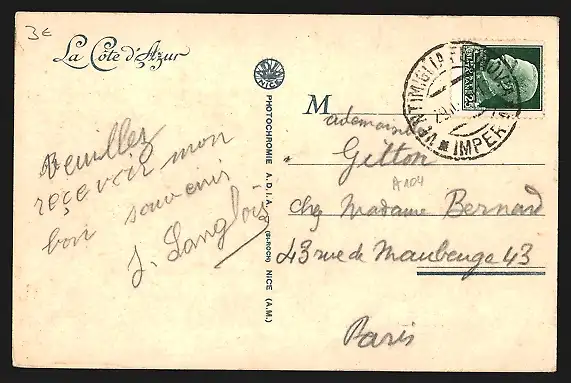 3€
La Côte d'Azur
Veuillez
reçevoir mon
bon souvenir
J. Langlois
NICE
PHOTOCHROMIE A.D.I.A. (St-ROCH) NICE (A.M.)
VENTIMIGLIA
IMPERIA
Mademoiselle
Gitton
A104
chez Madame Bernard
43 rue de Maubeuge 43
Paris